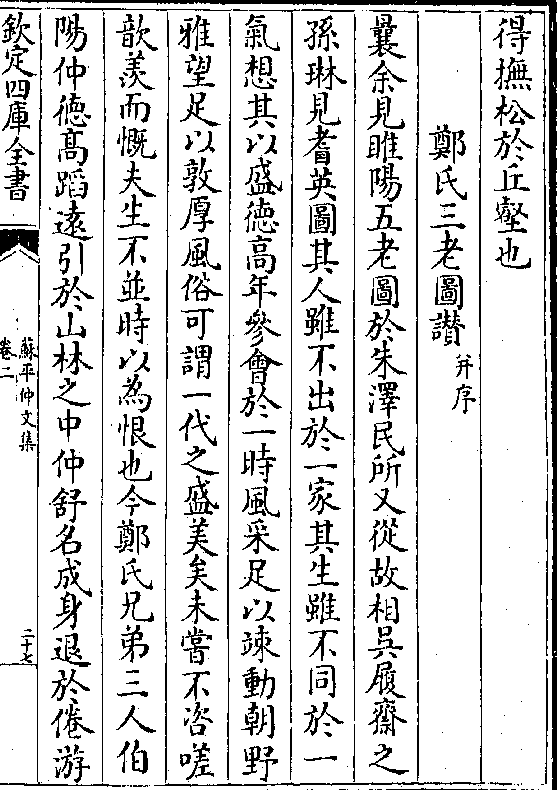 得撫松於丘壑也
鄭氏三老圖讃并序
曩余見睢陽五老圖於朱澤民所又從故相吳履齋之
孫琳見耆英圖其人雖不出於一家其生雖不同於一
氣想其以盛徳高年參㑹於一時風采足以竦動朝野
雅望足以敦厚風俗可謂一代之盛美矣未嘗不咨嗟
歆羨而慨夫生不並時以為恨也今鄭氏兄弟三人伯
陽仲徳高蹈逺引於山林之中仲舒名成身退於倦游
欽定四庫全書
蘇平仲文集
卷二
二十七